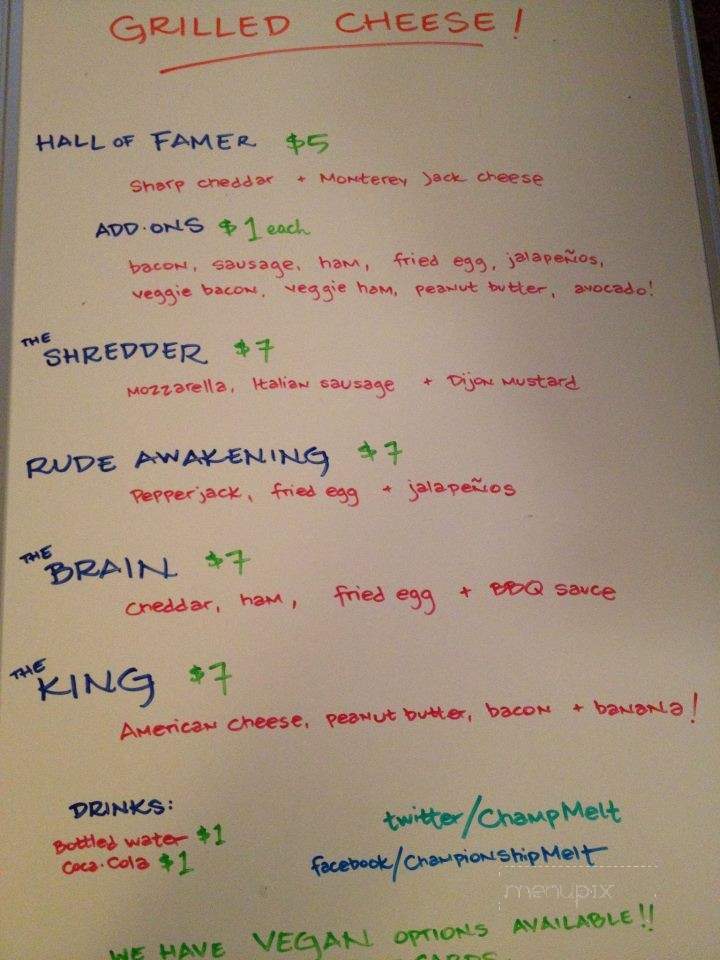 GRILLED CHEESE!
HALL OF FAMER $5
Sharp cheddar + Monterey Jack cheese
ADD·ONS $1 each
bacon, sausage, ham, fried egg, jalapeños,
veggie bacon, veggie ham, peanut butter, avocado!
THE SHREDDER $7
Mozzarella, Italian sausage + Dijon Mustard
RUDE AWAKENING $7
Pepperjack, fried egg + jalapeños
THE BRAIN $7
Cheddar, ham, fried egg + BBQ sauce
THE KING $7
American cheese, peanut butter, bacon + banana!
DRINKS:
Bottled water $1
Coca·Cola $1
twitter/ChampMelt
facebook/ChampionshipMelt
menupix
WE HAVE VEGAN OPTIONS AVAILABLE!!
CARDS